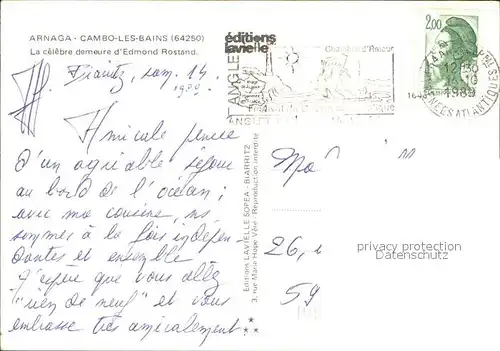 ARNAGA - CAMBO-LES-BAINS (64250)
La célèbre demeure d'Edmond Rostand.
éditions
lavielle
ANGLET
Chambre d'Amour
2,00
12 H 30
1989
PYRENEES ATLANTIQUES
Biarritz, sam. 14
1989
Amicale pensée
d'un agréable séjour
au bord de l'océan ;
avec ma cousine, ns
sommes à la fois indépen-
dantes et ensemble
J'espère que vous allez
"rien de neuf" et vous
embrasse très amicalement
Editions LAVIELLE SOPEA - BIARRITZ
3, rue Marie Hope Vère - Reproduction interdite
26,
59
privacy protection
Datenschutz